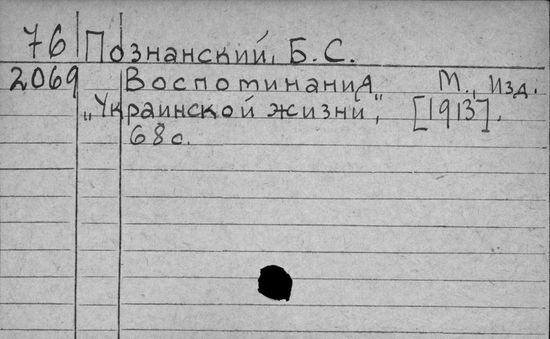 76 Познанский, Б.С.
2069 Воспоминания. М., изд.
„Украинской жизни", [1913].
68 с.